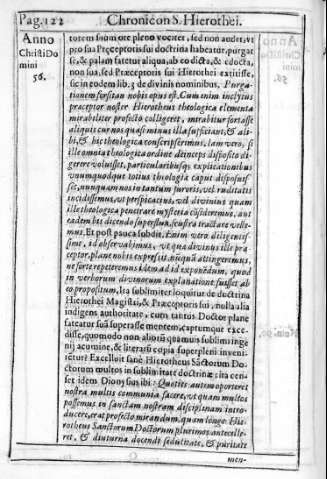 Pag. 122 Chronicon S. Hierothei.
Anno
Christi Do
mini
56.
totem suum ore pleno vociter, sed non audet, vt
pro sua Præceptoris sui doctrina habeatur, purgat
se, & palam fatetur aliqua, ab eo dicta, & edocta,
non sua, sed Præceptoris sui Hierothei extitisse,
sic in eodem lib. 3 de divinis nominibus. Purga-
tionem forsitan nobis opus est. Cum enim inclytus
præceptor noster Hierotheus theologica elementa
mirabiliter profecto colligeret, mirabitur fortasse
aliquis cur nos quasi minus illa sufficiant, & ali-
bi, & hic theologica conscripserimus. Iam vero, si
ille omnia theologica ordine deinceps disposito di-
gerere voluisset, particularibusque explicationibus
vnumquodque totius theologiæ caput disposuis-
set, nunquam nos in tantum furoris, vel ruditatis
incidissemus, vt perspicacius, vel divinius quam
ille theologica penetrare mysteria crederemus, aut
eadem bis dicendo superflua,
mus. Et post pauca subdit. Enim vero diligentis-
sime, id observabimus, vt qua divinus ille præ-
ceptor, plane nobis expressit nūquā attingeremus,
ne forte repeteremus idem ad id exponēdum, quod
in verborum divinorum explanatione fuisset ab
eo propositum. Ita sublimiter loquitur de doctrina
Hierothei Magistri, & Præceptoris sui, nulla alia
indigens authoritate, cum tantus Doctor plane
fateatur suā superasse mentem, captumque exce-
disse, quomodo non aliorū quamvis sublimi inge
nij acumine, & literarū copia superpleni inveni-
retur? Excelluit sanè Hierotheus Sāctorum Do-
ctorum multos in sublimitate doctrinæ: ita cen-
set idem Dionysius ibi: Quoties autem oporteret
nostra multis communia facere, vt quam multos
possemus in sanctam nostram disciplinam intro-
ducere, erat profecto mirandum, quam longè Hie-
rotheus Sanctorum Doctorum plurimos antecelle-
ret, & diuturna docendi sedulitate, & puritate
men-